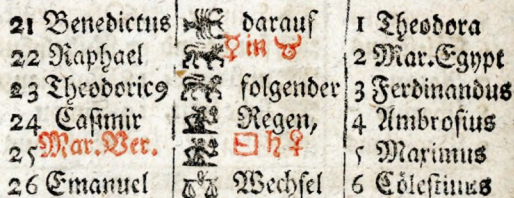 21 Benedictus ♌ darauf 1 Theodora
22 Raphael ♌ ☿ in ♉ 2 Mar.Egypt
23 Theodoricꝰ ♌ folgender 3 Ferdinandus
24 Casimir ♍ Regen, 4 Ambrosius
25 Mar.Ver. ♍ □ ♄ ♀ 5 Maximus
26 Emanuel ♎ Wechsel 6 Cölestinus